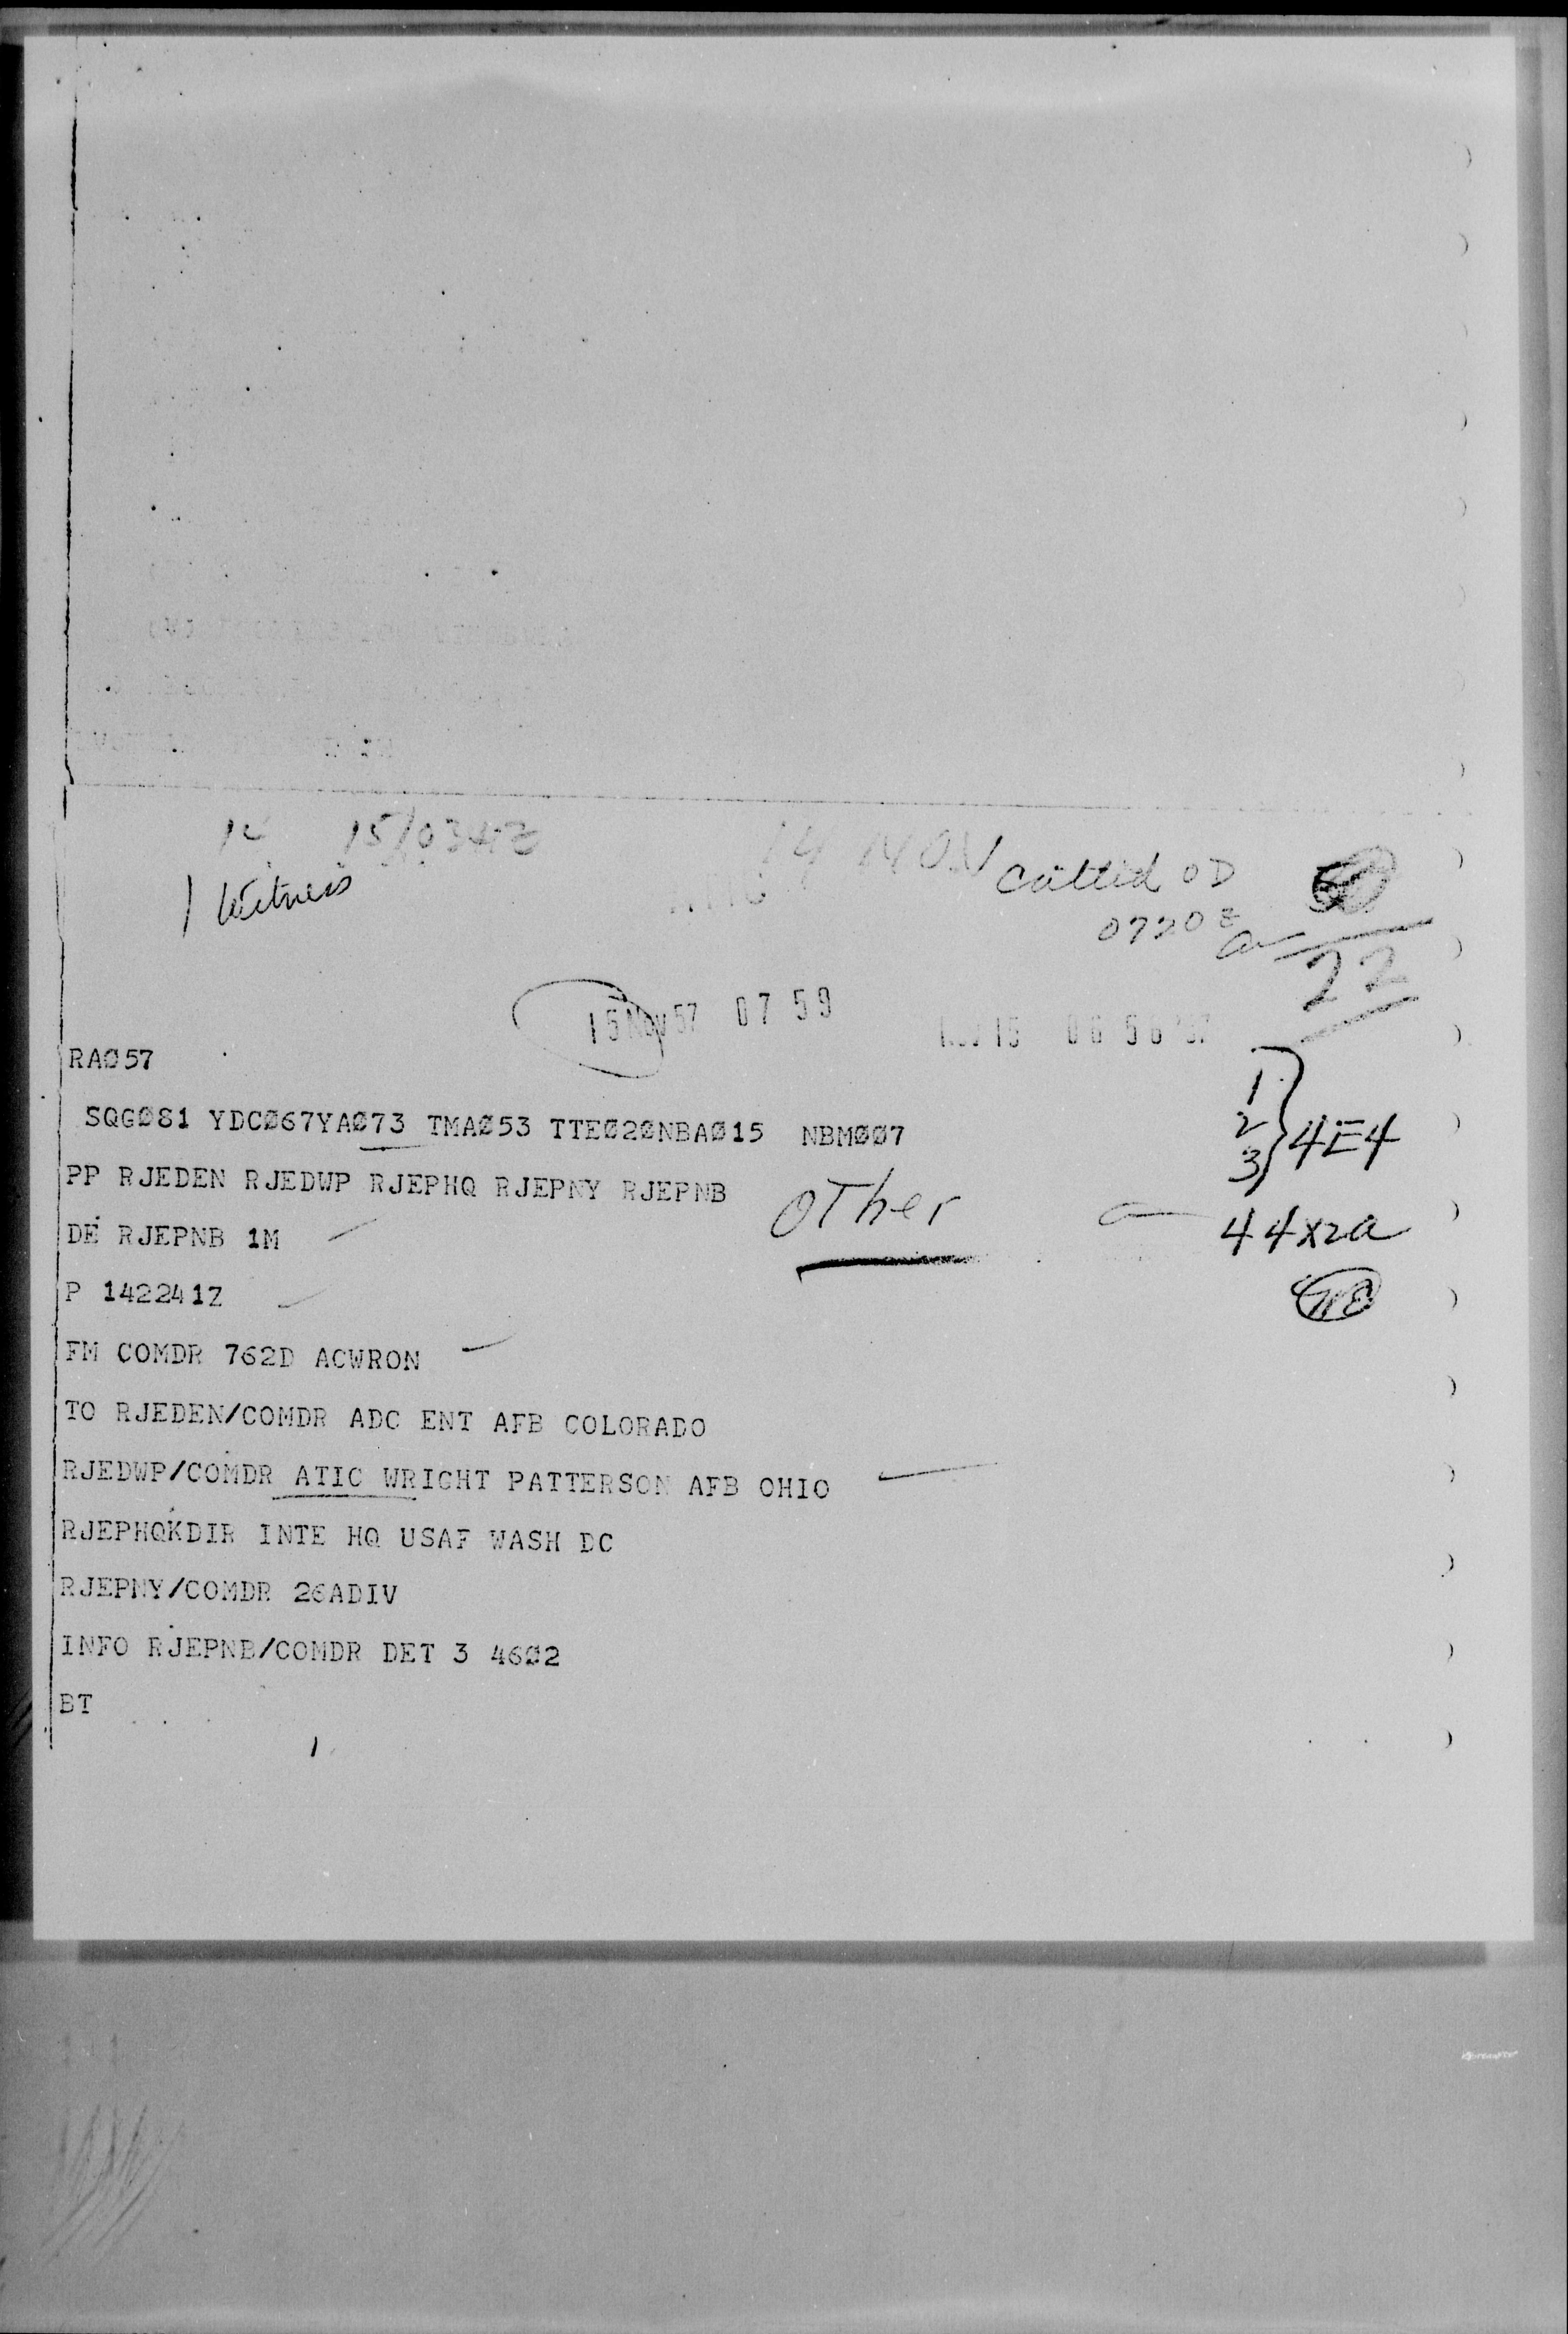 14 NOV
1 Witness
Called OD
0720Z
22
15 NOV 57 07 59
RAØ57
1
2
3 } 4E4
SQGØ81 YDCØ67YAØ73 TMAØ53 TTEØ2ØNBAØ15 NBMØØ7
PP RJEDEN RJEDWP RJEPHQ RJEPNY RJEPNB
OTher
44X2a
DE RJEPNB 1M
P 142241Z
FM COMDR 762D ACWRON
TO RJEDEN/COMDR ADC ENT AFB COLORADO
RJEDWP/COMDR ATIC WRIGHT PATTERSON AFB OHIO
RJEPHQKDIR INTE HQ USAF WASH DC
RJEPNY/COMDR 26ADIV
INFO RJEPNB/COMDR DET 3 46Ø2
BT